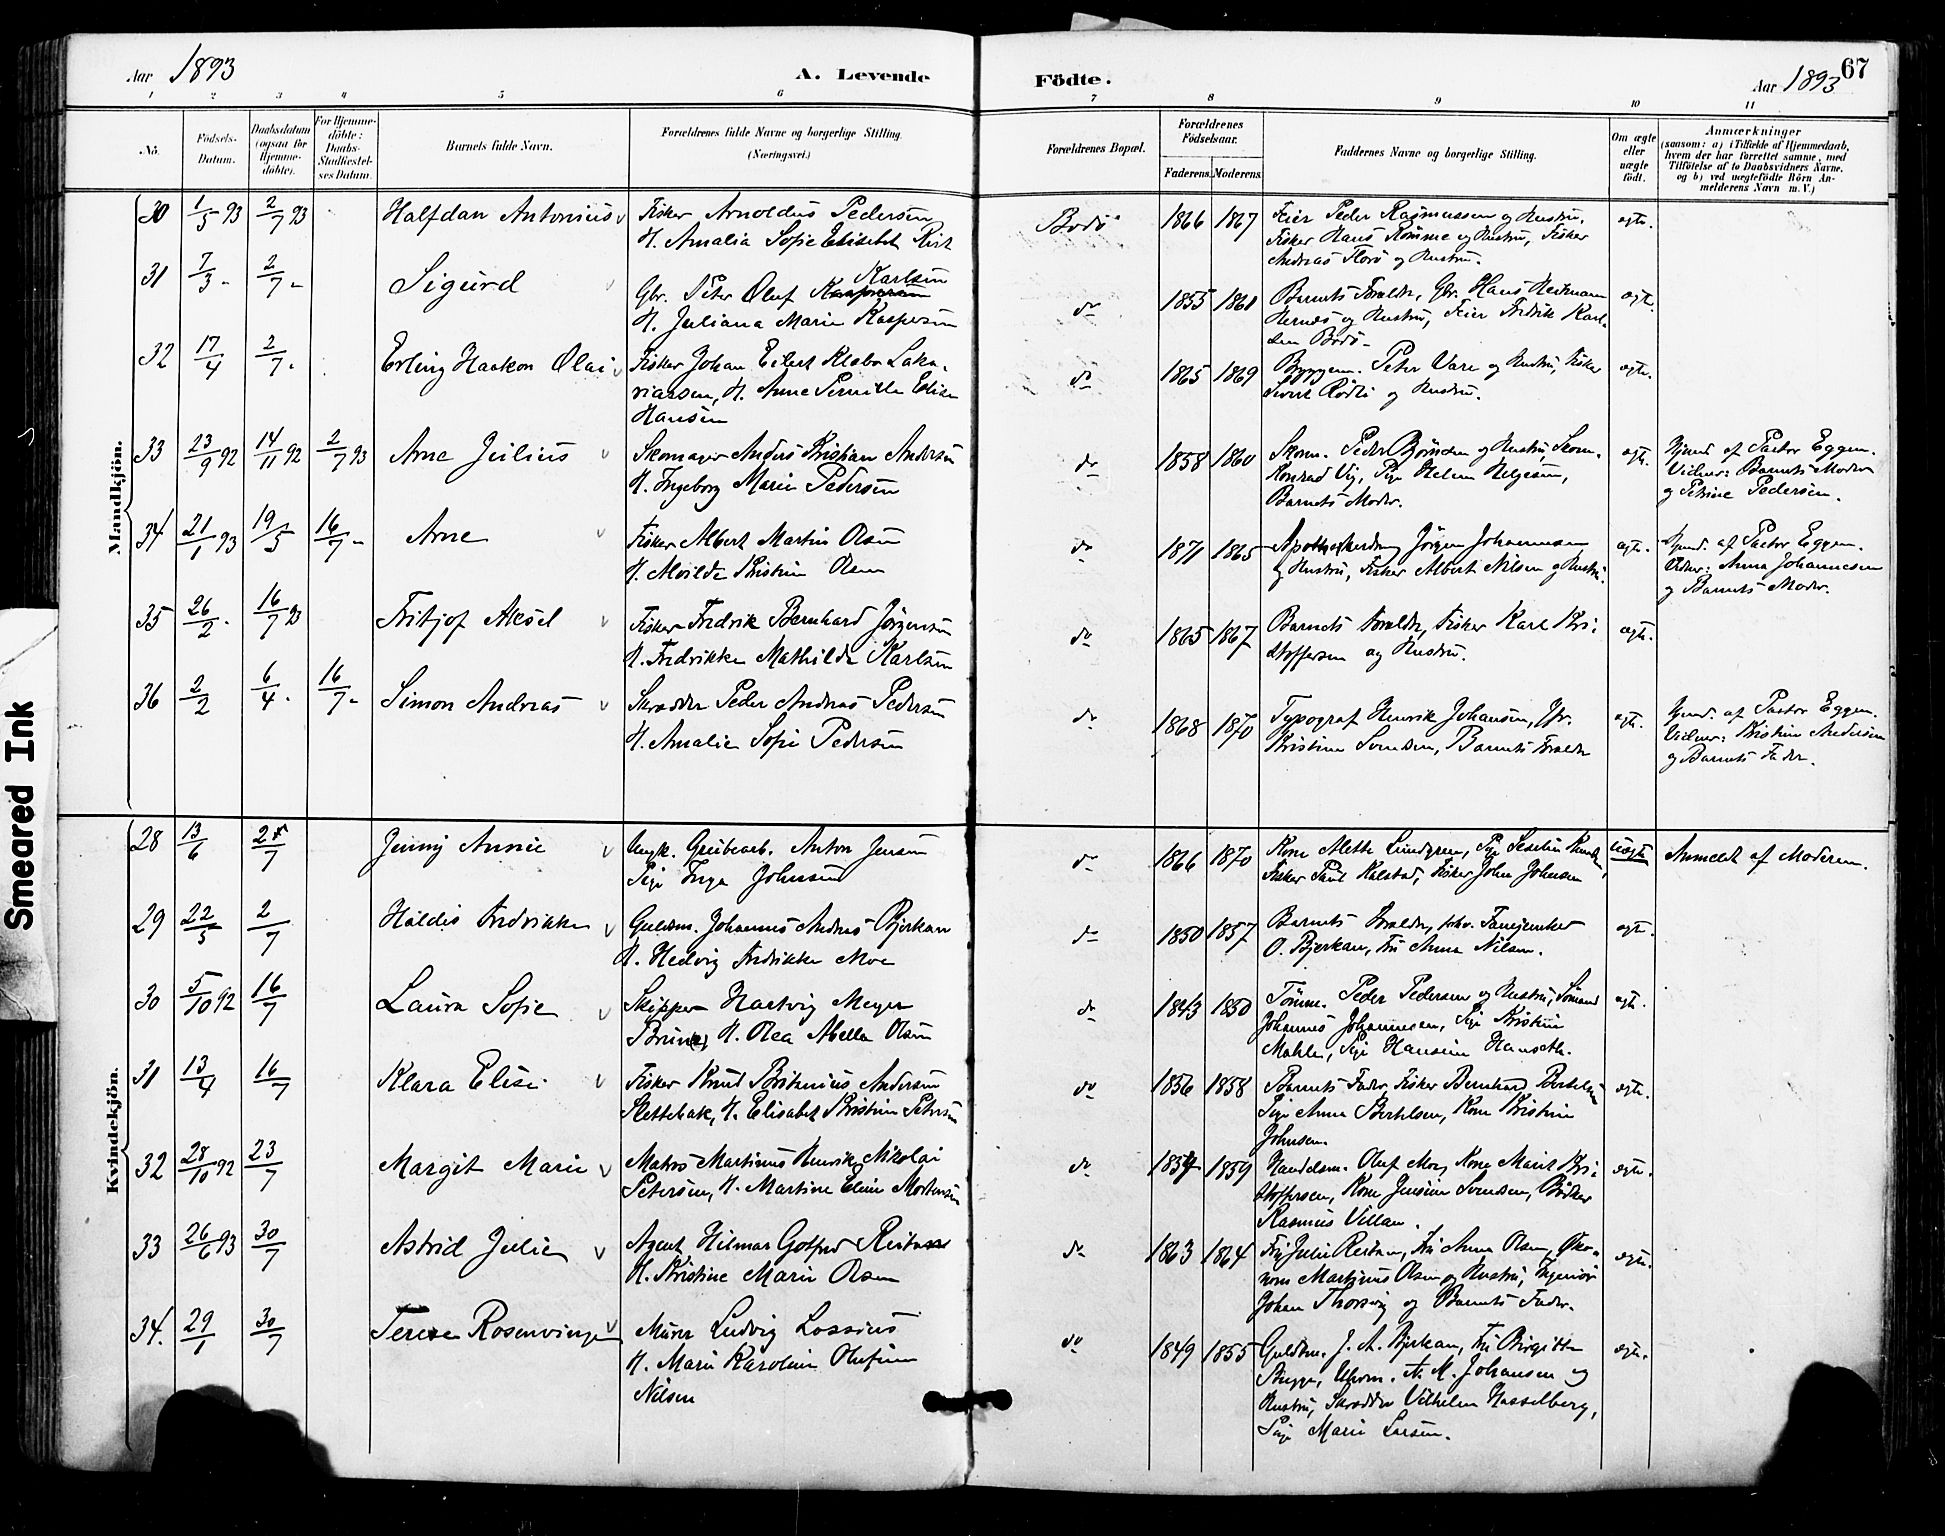 Aar 1893
A. Levende
Födte.
Aar 1893
67
1 2 3 4 5 6 7 8 9 10 11
No.
Födsels-
Datum.
Daabsdatum
(ogsaa for
Hjemme-
döbte).
For Hjemme-
döbte:
Daabs-
Stadfæstel-
ses Datum.
Barnets fulde Navn.
Forældrenes fulde Navne og borgerlige Stilling.
(Næringsvei.)
Forældrenes Bopæl.
Forældrenes
Födselsaar.
Faderens. Moderens.
Faddernes Navne og borgerlige Stilling.
Om ægte
eller
uægte
födt.
Anmærkninger
(saasom: a) i Tilfælde af Hjemmedaab,
hvem der har forrettet samme, med
Tilföielse af to Daabsvidners Navne,
og b) ved uægtefödte Börn An-
melderens Navn m. V.)
Mandkjön.
30 1/5 93 2/7 93 Halfdan Antonius Fisker Arnoldus Pedersen
H. Amalia Sofie Elisebet
Bodö 1866 1867 Feier Peder Rasmussen og Hustru,
Fisker Hans Römme og Hustru, Fisker
Andreas Florö og Hustru.
ægte.
31 7/3 - 2/7 - Sigurd Karlsen
Gbr. Peter Oluf
H. Juliana Marie Kaspersen
do 1855 1861 Barnets Forældre, Gbr. Hans
Hernes og Hustru, Feier Fredrik Karl-
sen Bodö.
ægte.
32 17/4 2/7 - Erling Haakon Olai Fisker Johan Eilert Klabo Zaka-
riassen, H. Anne Pernille Elise
Hansen
do 1865 1869 Byggem. Peter Vare og Hustru, Fisker
Sivert Rödli og Hustru.
ægte.
33 23/9 92 14/11 92 2/7 93 Arne Julius Skomager Anders Kristian Andersen
H. Ingeborg Marie Pedersen
do 1858 1860 Skom. Peder Björnsen og Hustru, Skom.
Konrad Vig, Pige Helene Helgesen,
Barnets Moder.
ægte. Hjemd. af Pastor Eggen.
Vidner: Barnets Moder
og Petrine Pedersen.
34 21/1 93 19/5 16/7 - Arne Fisker Albert Martin Olsen
H. Alvilde Kristine Olsen
do 1871 1865 Jörgen Johannesen
og Hustru, Fisker Albert Nilsen og Hustru.
ægte. Hjemd. af Pastor Eggen.
Vidner: Anna Johannesen
og Barnets Moder.
35 26/2 - 16/7 93 Fritjof Aksel Fisker Fredrik Bernhard Jörgensen
H. Fredrikke Mathilde Karlsen
do 1865 1867 Barnets Forældre, Fisker Karl Kri-
stoffersen og Hustru.
ægte.
36 2/2 6/4 - 16/7 - Simon Andreas Skrædder Peder Andreas Pedersen
H. Amalie Sofie Pedersen
do 1868 1870 Typograf Henrik Johansen, Jfr.
Kristine Svendsen, Barnets Forældre
ægte. Hjemd. af Pastor Eggen.
Vidner: Kristine Andersen
og Barnets Fader.
Kvindekjön.
28 13/6 2/7 Jenny Annie Ungk. Grubearb. Anton Jensen
Pige Inga Johnsen
do 1866 1870 Kone Mette Lundgren, Pige
Fisker Paul Kalstad, Fisker John Johnsen
uægte Anmeldt af Moderen.
29 22/5 2/7 Haldis Fredrikke Guldsm. Johannes Andreas Bjerkan
H. Hedvig Fredrikke Moe
do 1850 1857 Barnets Forældre, forhv. Fanejunker
O. Bjerkan, Fru Anna Nilsen.
ægte.
30 5/10 92 16/7 Laura Sofie Skipper Hartvig Meyer
Brun(e), H. Olea Abella Olsen
do 1843 1850 Tömme. Peder Pedersen og Hustru, Sömand
Johannes Johannesen, Pige Kristine
Pige Hansine
ægte.
31 13/4 16/7 Klara Elise Fisker Knud Andersen
Slettebak, H. Elisabet Kristine Petersen
do 1856 1858 Barnets Fader, Fisker Bernhard Bertelsen
Pige Anna Bertelsen, Kone Kristine
Johnsen.
ægte.
32 28/10 92 23/7 Margit Marie Matros Martinus Henrik Nikolai
Petersen, H. Martine Eline Mortensen
do 1854 1859 Handelsm. Oluf Moe, Kone Marit Kri-
stoffersen, Kone Jensine Svendsen, Bödker
Rasmus Villan.
ægte.
33 26/6 93 30/7 Astrid Julie Agent Hilmar Gotfred Reitan
H. Kristine Marie Olsen
do 1863 1864 Fru Julie Reitan, Fru Anna Olsen, Öko-
nom Martinus Olsen og Hustru, Ingeniör
Johan Thorsvig og Barnets Fader.
ægte.
34. 29/1 30/7 Terese Rosenvinge Murer Ludvig Lossius
H. Marie Karoline Olufine
Nilsen
do 1849 1855 Guldsm. J. A. Bjerkan, Fru Birgitte
A. M. Johansen og
Hustru, Skrædder Vilhelm Hasselberg,
Pige Marie Larsen.
ægte.
Smeared Ink